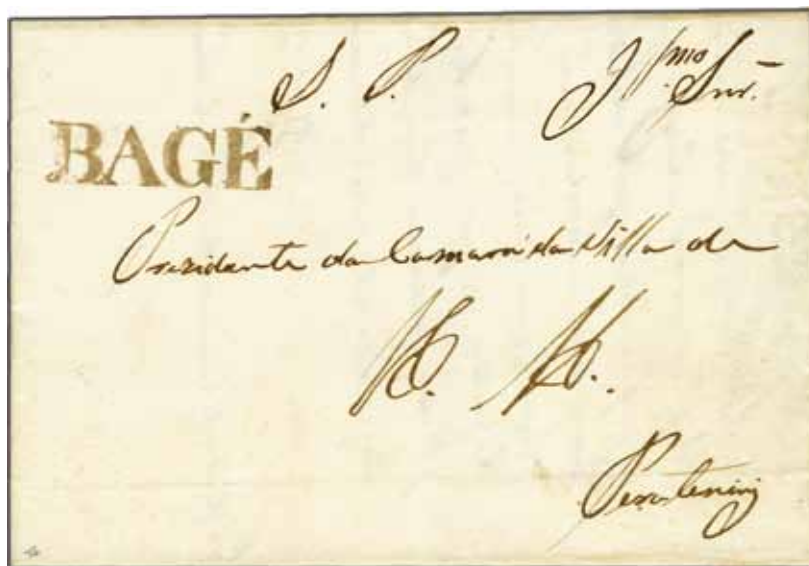 S. P. Illmo Snr.
BAGÉ
Prezidente da Camara da Villa de